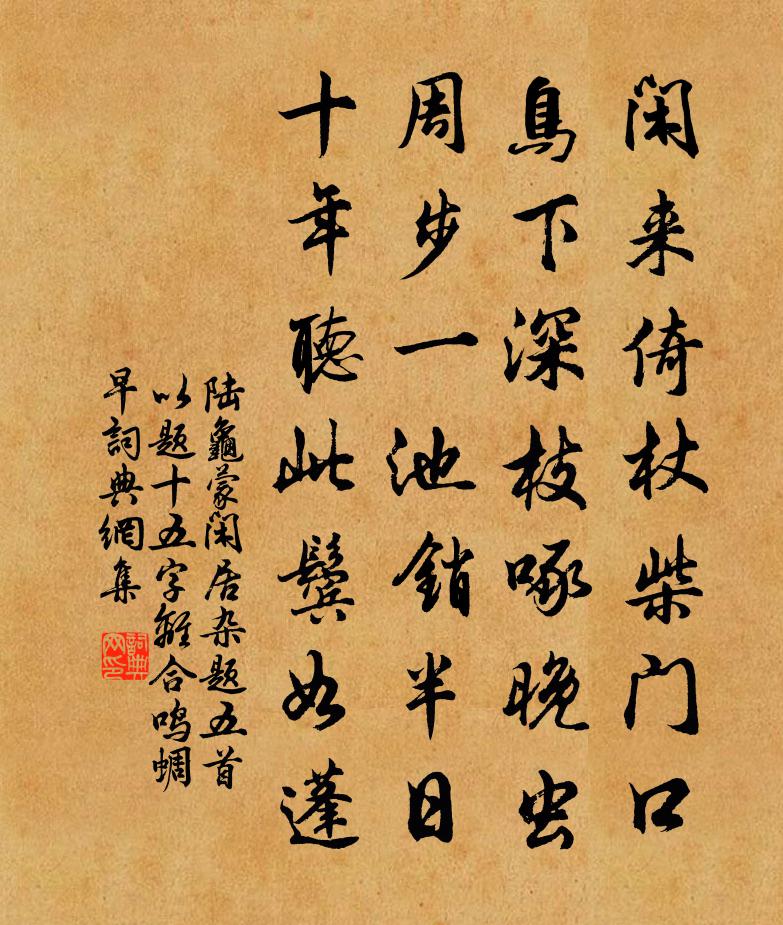 闲来倚杖柴门口
鳥下深枝啄晚虫
周步一池銷半日
十年聽此鬢如蓬
陆龜蒙闲居杂题五首
以题十五字離合鸣蜩
早詞典網集
詞典
网印